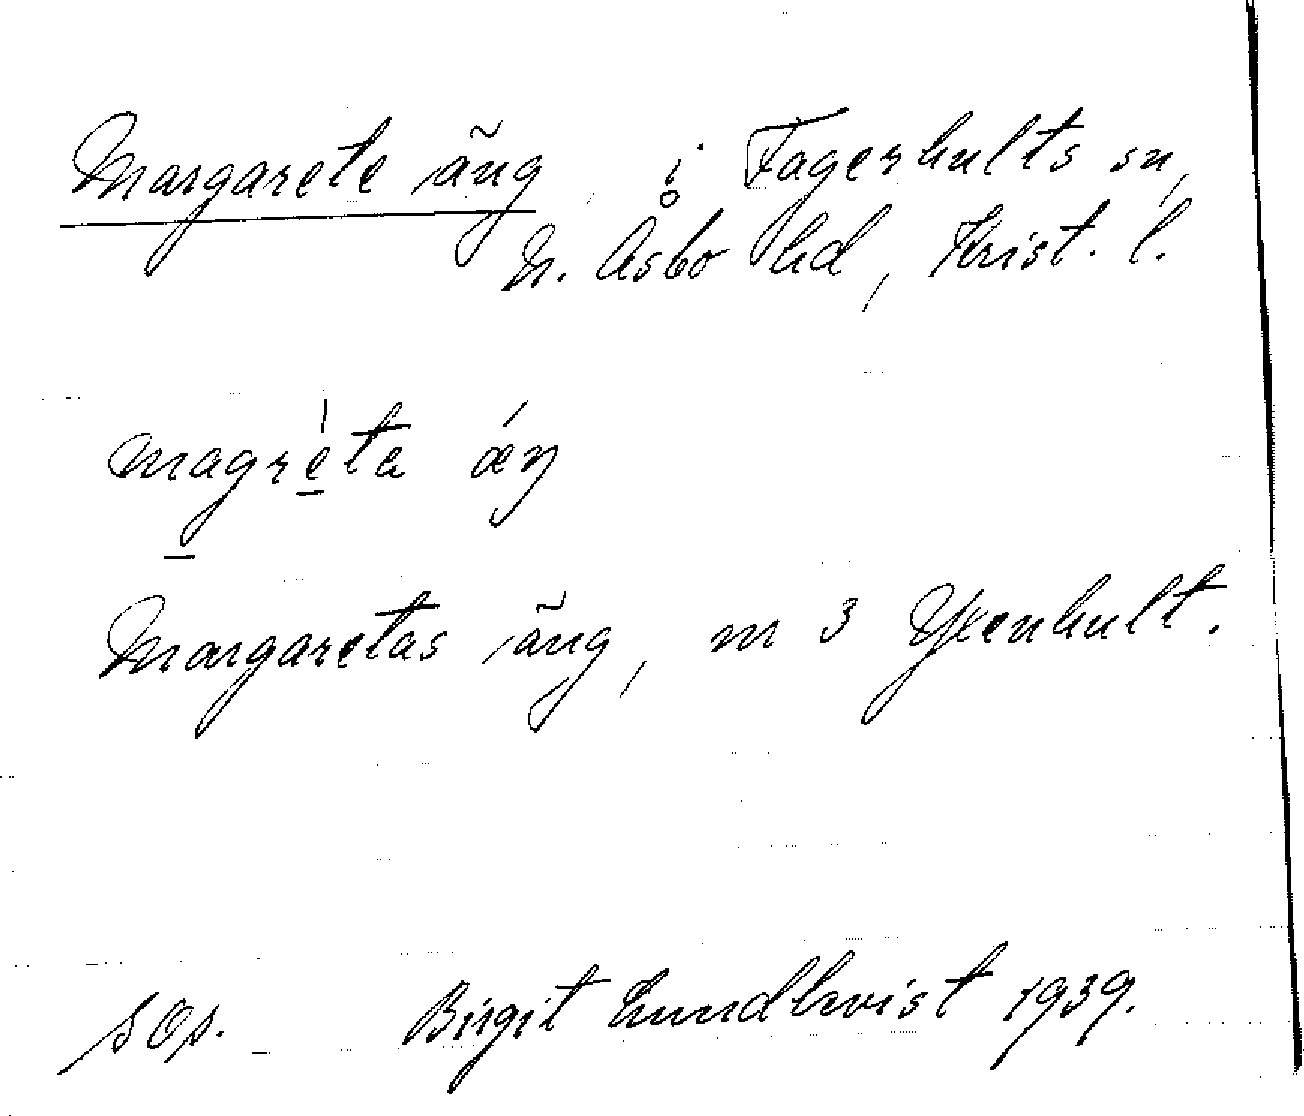 Margarete äng i Fagerhults sn,
N. Åsbo hd, Krist. l.
magréta ǽŋ
Margaretas äng, m 3 Yxenhult.
s Os. Birgit Lundkvist 1939.